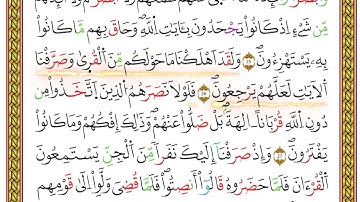 مِّن شَىْءٍ إِذْ كَانُوا۟ يَجْحَدُونَ بِـَٔايَٰتِ ٱللَّهِ وَحَاقَ بِهِم مَّا كَانُوا۟
بِهِۦ يَسْتَهْزِءُونَ وَلَقَدْ أَهْلَكْنَا مَا حَوْلَكُم مِّنَ ٱلْقُرَىٰ وَصَرَّفْنَا
ٱلْءَايَٰتِ لَعَلَّهُمْ يَرْجِعُونَ فَلَوْلَا نَصَرَهُمُ ٱلَّذِينَ ٱتَّخَذُوا۟ مِن
دُونِ ٱللَّهِ قُرْبَانًا ءَالِهَةَۢ بَلْ ضَلُّوا۟ عَنْهُمْ وَذَٰلِكَ إِفْكُهُمْ وَمَا كَانُوا۟
يَفْتَرُونَ وَإِذْ صَرَفْنَآ إِلَيْكَ نَفَرًا مِّنَ ٱلْجِنِّ يَسْتَمِعُونَ
ٱلْقُرْءَانَ فَلَمَّا حَضَرُوهُ قَالُوٓا۟ أَنصِتُوا۟ فَلَمَّا قُضِىَ وَلَّوْا۟ إِلَىٰ قَوْمِهِم